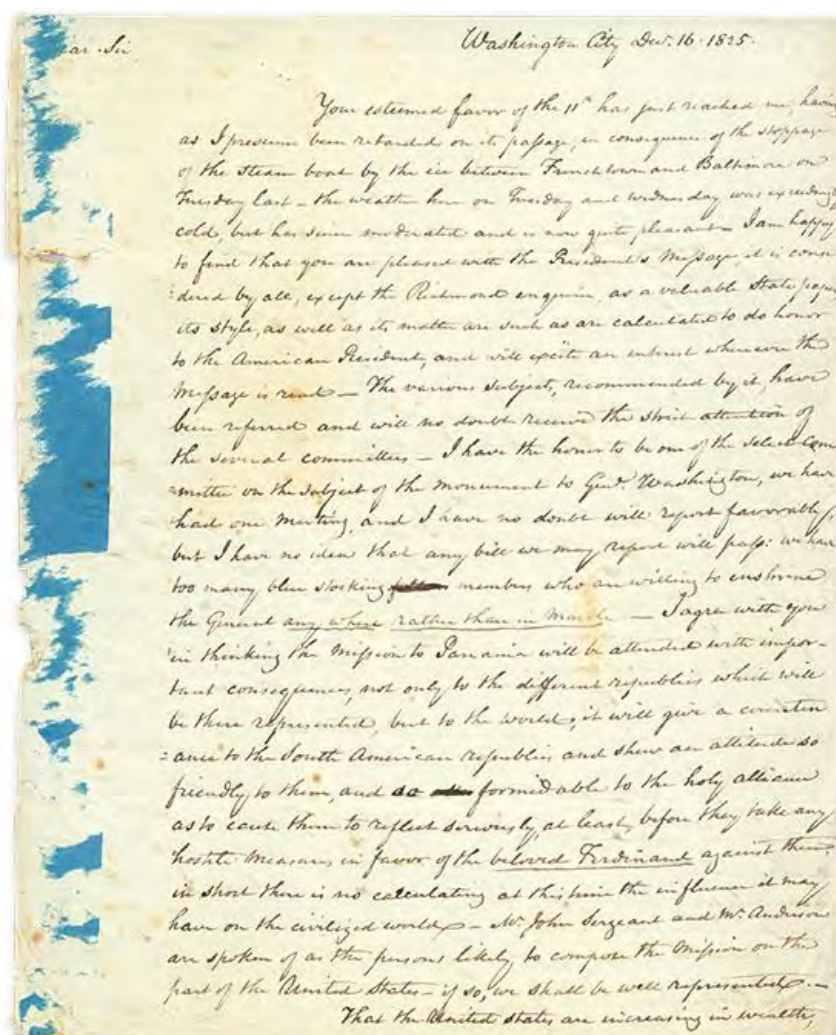 ear Sir Washington City Dec. 16. 1825.
Your esteemed favor of the 11th has just reached me, having
as I presume been retarded on its passage, in consequence of the stoppage
of the steam boat by the ice between Frenchtown and Baltimore on
Tuesday last – the weather here on Tuesday and Wednesday was exceedingly
cold, but has since moderated and is now quite pleasant – I am happy
to find that you are pleased with the President's Message, it is consi
=dered by all, except the Richmond enquirer, as a valuable State paper
its style, as well as its matter are such as are calculated to do honor
to the American President, and will excite an interest wherever the
Message is read – The various subjects, recommended by it, have
been referred and will no doubt receive the strict attention of
the several committees – I have the honor to be one of the select com
=mittee on the subject of the monument to Genl. Washington, we have
had one meeting, and I have no doubt will report favorably,
but I have no idea that any bill we may report will pass: we have
too many blue stocking members who are willing to enshrine
the General any where rather than in Marble – I agree with you
in thinking the Mission to Panama will be attended with impor-
tant consequences, not only to the different republics which will
be there represented, but to the world, it will give a counten
=ance to the South American republics and shew an attitude so
friendly to them, and so formidable to the holy alliance
as to cause them to reflect seriously, at least, before they take any
hostile measures in favor of the beloved Ferdinand against them.
in short there is no calculating at this time the influence it may
have on the civilized world – Mr. John Sergeant and Mr. Anderson
are spoken of as the persons likely to compose the Mission on the
part of the United States – if so, we shall be well represented. –
That the United States are increasing in wealth,